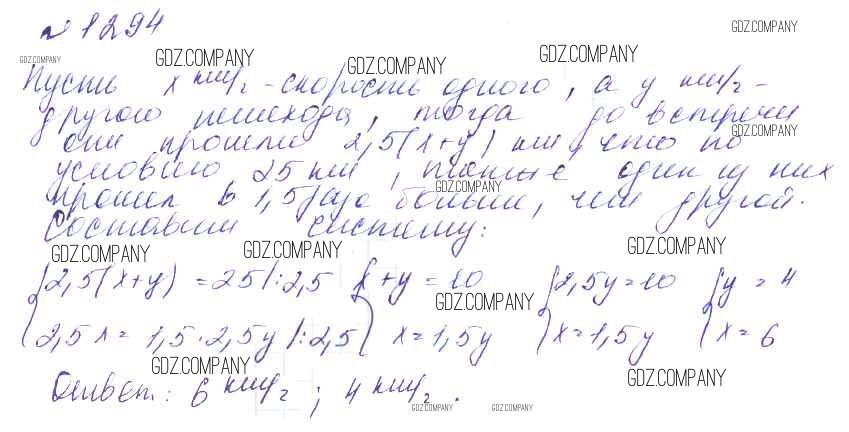 № 1294
GDZ.COMPANY
GDZ.COMPANY GDZ.COMPANY GDZ.COMPANY GDZ.COMPANY
Пусть x км/г - скорость одного, а y км/г -
другого пешехода, тогда до встречи
они прошли 2,5(x+y) км, что по
GDZ.COMPANY
условию 25 км, также один из них
GDZ.COMPANY
прошел в 1,5 раза больше, чем другой.
Составим систему:
GDZ.COMPANY GDZ.COMPANY GDZ.COMPANY
{2,5(x+y) = 25 |:2,5 {x+y = 10 {2,5y=10 {y = 4
GDZ.COMPANY
2,5x = 1,5·2,5y |:2,5 x=1,5y x=1,5y x=6
GDZ.COMPANY GDZ.COMPANY
Ответ: 6 км/г; 4 км/г.
GDZ.COMPANY GDZ.COMPANY